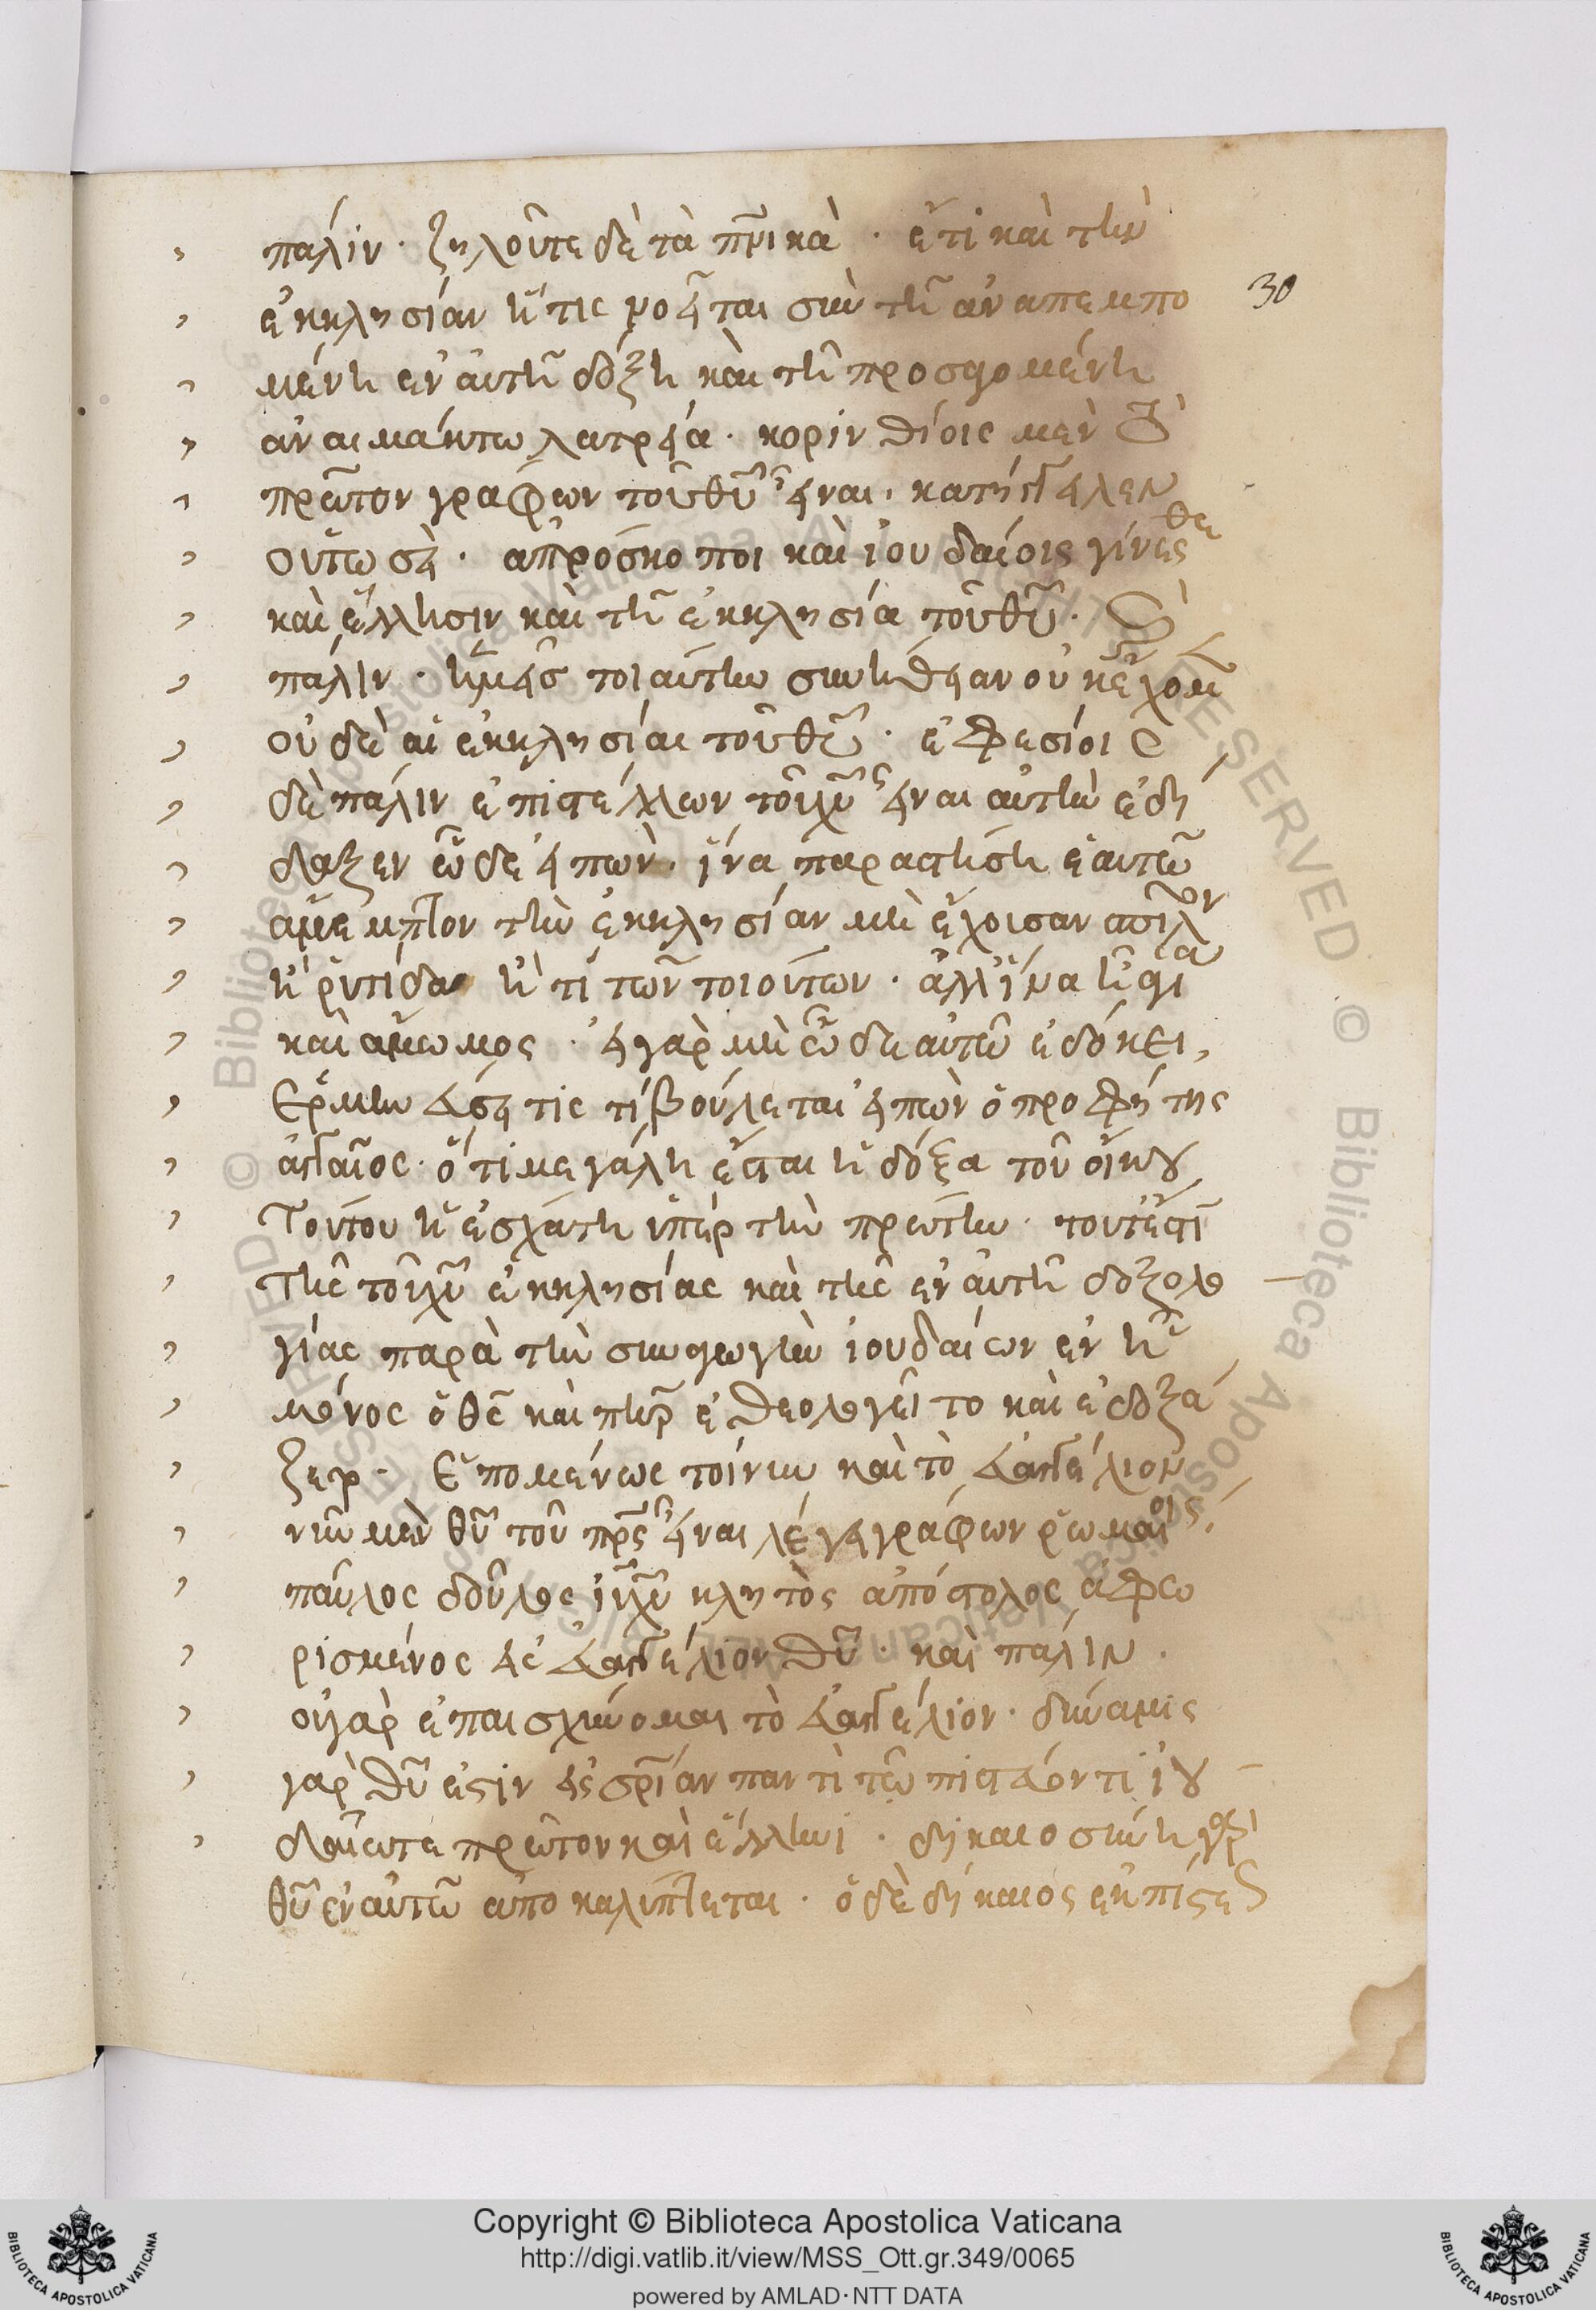 πάλιν · ζηλοῦτε δὲ τὰ πν̅ικὰ · ἔτι καὶ τὴν
30
ἐκκλησίαν ἥτις νοεῖται σὺν τῆ ἀναπεμπο
μένη ἐν αὐτῆ δόξη καὶ τῆ προσφερομένη
ἀναιμάκτω λατρεία · κορινθίοις μὲν
πρῶτον γράφων τοῦ θυ̅ εἶναι · κατήγγελεν
οὕτωσὶ · ἀπρόσκοποι καὶ ἰουδαίοις γίνεσθε
καὶ ἕλλησιν καὶ τῆ ἐκκλησία τοῦ θυ̅ ·
πάλιν · ἡμεῖς τοιαύτην συνήθειαν οὐκ ἔχομεν
οὐδὲ αἱ ἐκκλησίαι τοῦ θυ̅ · ἐφεσίοις
δὲ πάλιν ἐπιστέλλων τοῦ χυ̅ εἶναι αὐτὴν ἐδί
δαξεν ὧδε εἰπών · ἵνα παραστήση ἑαυτῶ
ἄμεμπτον τὴν ἐκκλησίαν μὴ ἔχοισαν σπίλον
ἢ ῥυτίδα ἤ τι τῶν τοιούτων · ἀλλ' ἵνα ἦ ἁγία
καὶ ἄμωμος · εἰ γὰρ μὴ ὧδε αὐτῶ ἐδόκει,
Ἑρμηνευσάτω τις τί βούλεται εἰπὼν ὁ προφήτης
ἀγγαῖος · ὅτι μεγάλη ἔσται ἡ δόξα τοῦ οἴκου
Τούτου ἡ ἐσχάτη ὑπὲρ τὴν πρώτην · τουτέστι
τῆς τοῦ χυ̅ ἐκκλησίας καὶ τῆς ἐν αὐτῆ δοξολο
γίας παρὰ τὴν συναγωγὴν ἰουδαίων ἐν ἧ
μόνος ὁ θς̅ καὶ πη̅ρ ἐθεολογεῖτο καὶ ἐδοξά
ζετο · Ἑπομένως τοίνυν καὶ τὸ εὐαγγέλιον
νῦν μὲν θυ̅ τοῦ πρ̅ς εἶναι λέγει γράφων ῥωμαίοις ·
παῦλος δοῦλος ιυ̅ χυ̅ κλητὸς ἀπόστολος ἀφω
ρισμένος εἰς εὐαγγέλιον θυ̅ · καὶ πάλιν ·
οὐ γὰρ ἐπαισχύνομαι τὸ εὐαγγέλιον · δύναμις
γὰρ θυ̅ ἐστιν εἰς σρ̅ίαν παντὶ τῶ πιστεύοντι ἰου
δαίω τε πρῶτον καὶ ἕλληνι · δικαιοσύνη γὰρ
θυ̅ ἐν αὐτῶ ἀποκαλύπτεται · ὁ δὲ δίκαιος ἐκ πίστεως
Copyright © Biblioteca Apostolica Vaticana
http://digi.vatlib.it/view/MSS_Ott.gr.349/0065
powered by AMLAD·NTT DATA